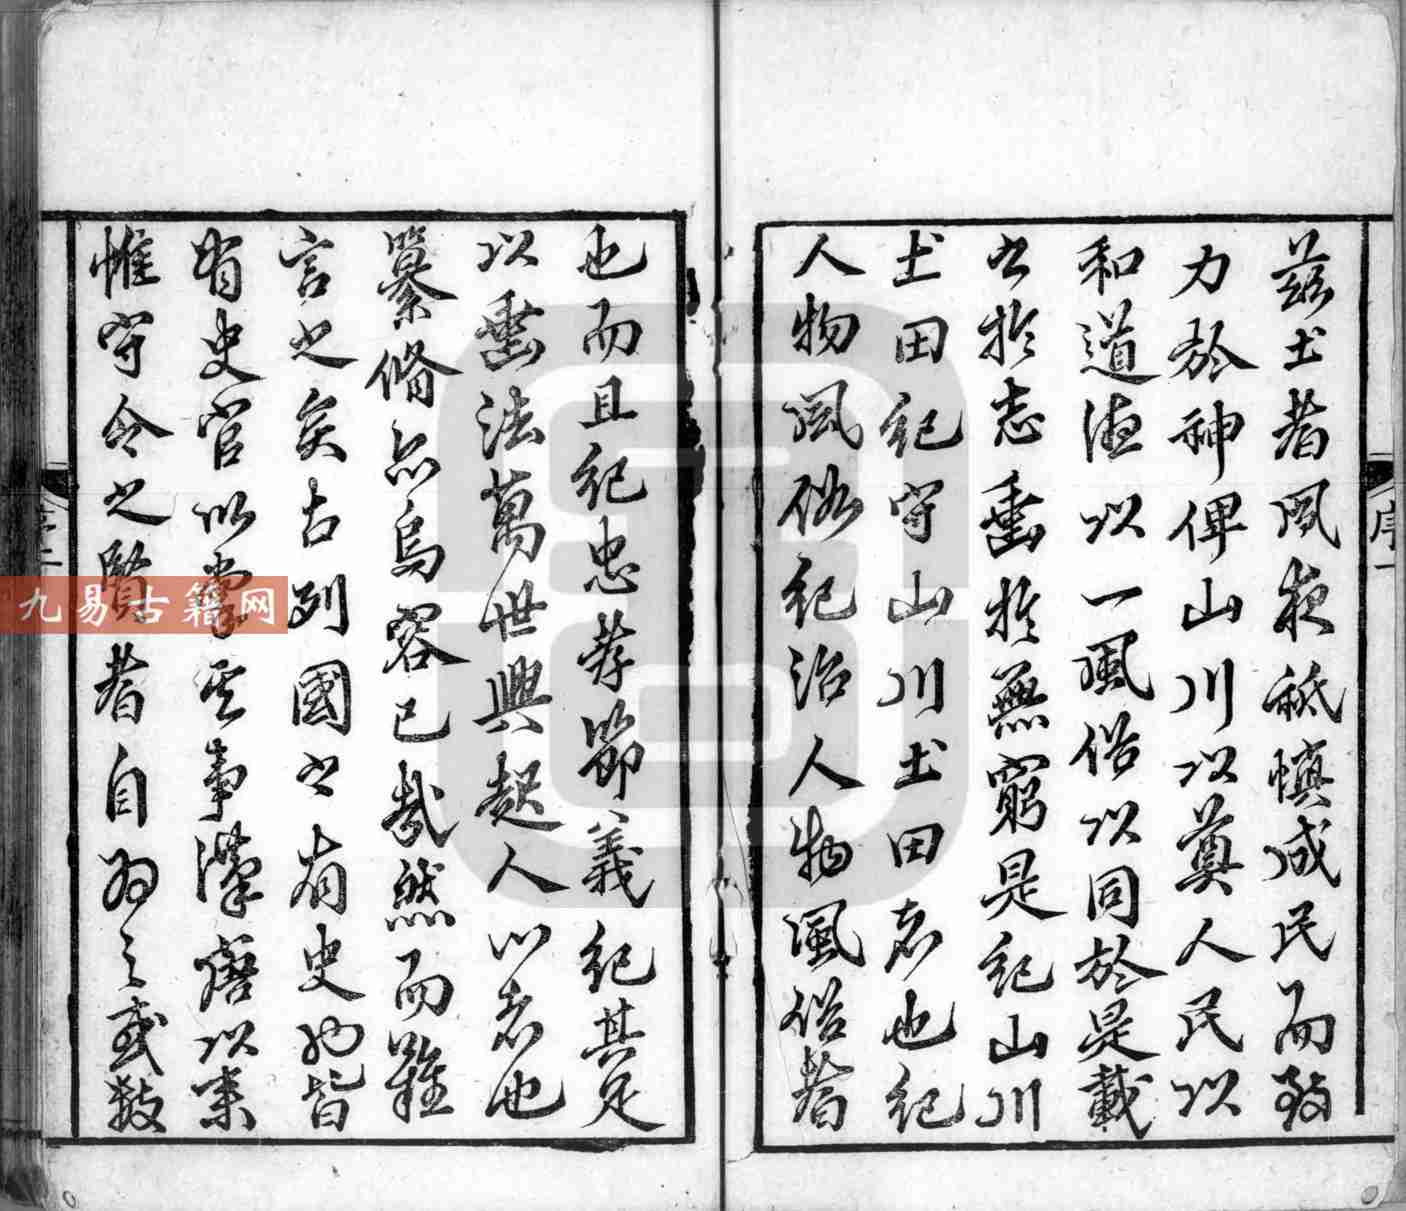 茲土者夙夜祗慎咸民而致
力於神俾山川以奠人民以
和道德以一風俗以同於是載
之於志垂於無窮是紀山川
土田紀守山川土田者也紀
人物風俗紀治人物風俗者
也而且紀忠孝節義紀其足
以垂法萬世興起人心者也
纂脩亦烏容已哉然而難
言之矣古列國之有史也皆
有史官以掌其事漢唐以來
惟守令之賢者自為之或數
序一
九易古籍网